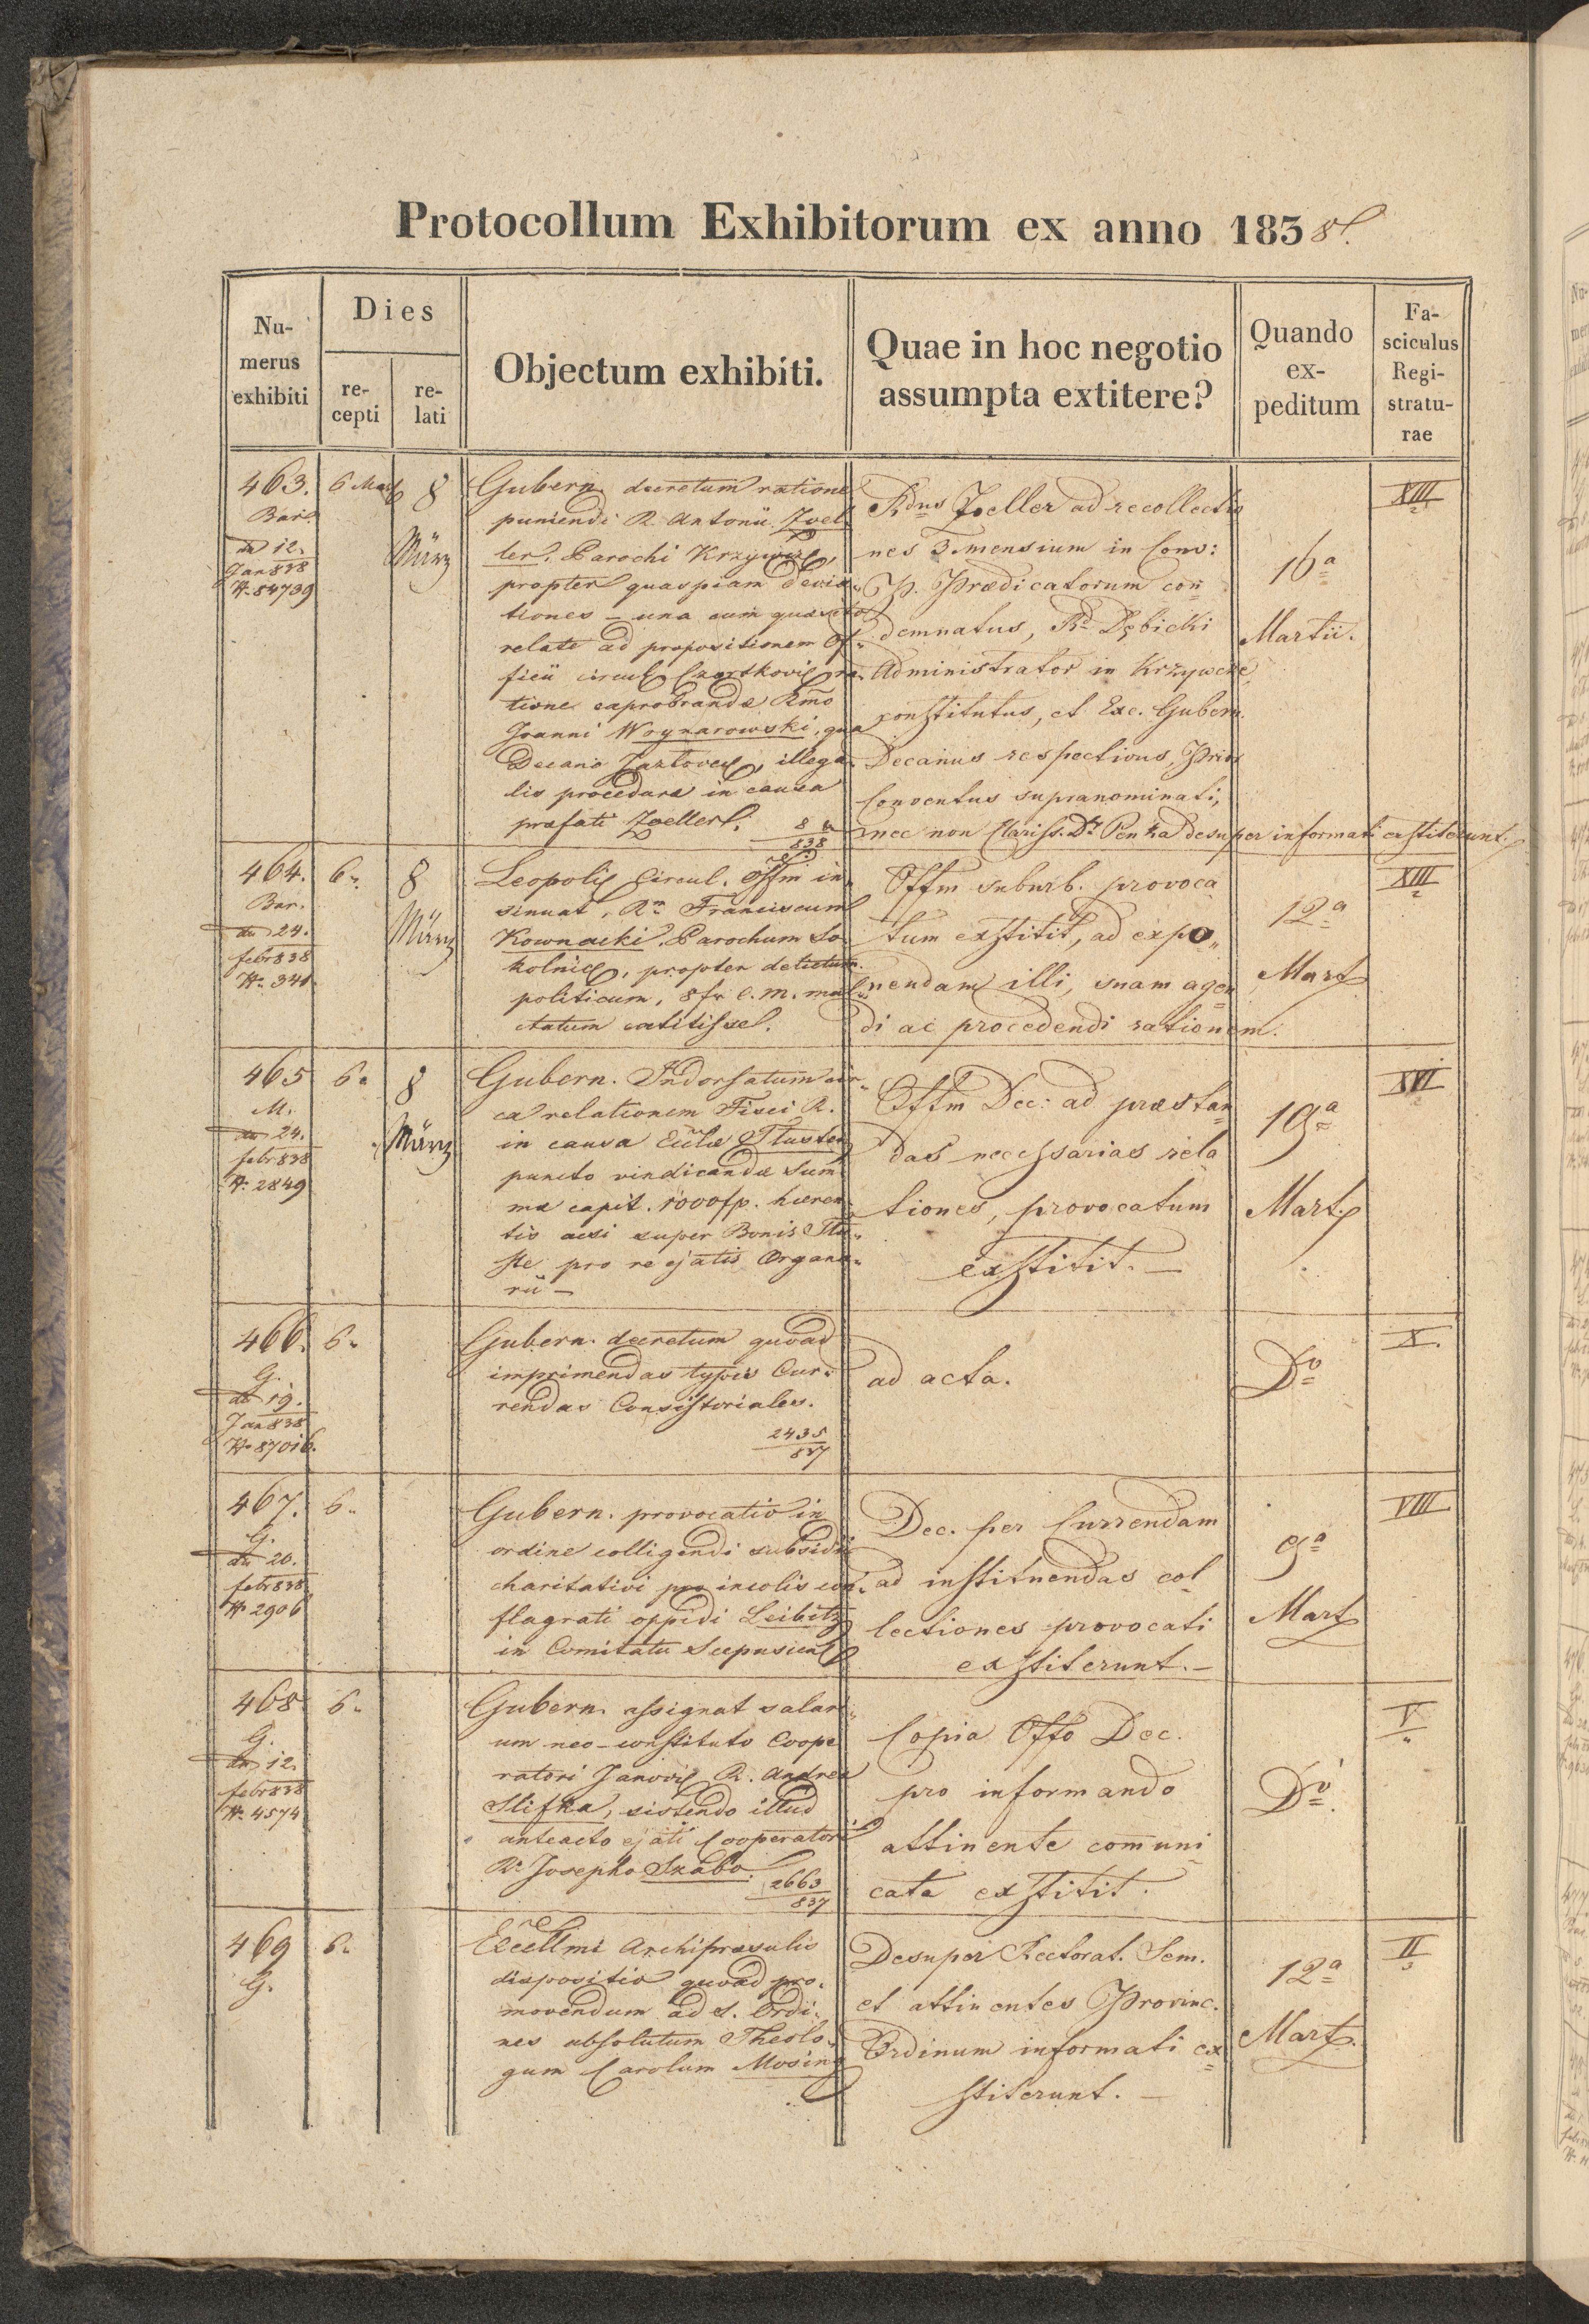 Protocollum Exhibitorum ex anno 1838.
Nu-
merus
exhibiti
Dies
re-
cepti
re-
lati
Objectum exhibiti.
Quae in hoc negotio
assumpta extitere?
Quando
ex-
peditum
Fa-
sciculus
Regi-
stratu-
rae
463.
Bar.
12.
Jan 838
N. 84739
6 Mart
8
März
Gubern. decretum ratione
puniendi R. Antonii Zoel
ler, Parochi Krzywcz,
propter quaspiam devia-
tiones – una cum
relate ad propositionem Of-
ficii circul Czortkovi ra-
tione exprobrandæ Rmo
Joanni Woynarowski, qua
Decano Jazlovec, illega-
lis procedura in causa
præfati Zoeller.
8
838
Rdus Zoeller ad recollectio
nes 3 mensium in Conv:
P. Prædicatorum con
demnatus, Rd Dębicki
Administrator in Krzywcze
constitutus, et Exc. Gubern.
Decanus respectivus, Prior
Conventus supranominati,
nec non Clariss. Dr Penka desuper informati exstiterunt.
16a
Martii.
XIII
464.
Bar.
24.
febr 838
N. 340
6.
8
März
Leopoli Circul. Offm in-
sinuat, Rm Franciscum
Kownacki, Parochum So-
kolnic, propter delictum
politicum, 8 fr C.M. mul-
ctatum extitisse.
Offm suburb. provoca
tum exstitit, ad expo„
nendam illi, suam agen
di ac procedendi rationem.
12a
Mart
XIII
465
M.
24.
febr 838
N. 2849
6.
8
März
Gubern. Indorsatum cir-
ca relationem Fisci R.
in causa Eccłæ Tluste
puncto vindicandæ Sum
mæ capit. 1000 fp. hæren
tis acsi super Bonis Tlu-
ste pro re ejatis Organa-
rii –
Offm Dec: ad præstan
das necessarias rela
tiones, provocatum
exstitit. –
19a
Mart.
XVI
466.
G.
19.
Jan 838
N. 87016.
6.
Gubern. decretum quoad
imprimendas typis Cur-
rendas Consistoriales.
2435
837
ad acta.
Do
X.
467.
G.
20.
febr 838
N 2906
6.
Gubern. provocatio in
ordine colligendi subsidii
charitativi pro incolis con-
flagrati oppidi Leibitz
in Comitatu Scepusien
Dec. per Currendam
ad instituendas col
lectiones provocati
exstiterunt. –
9a
Mart
VIII
468
G.
12.
febr 838
N. 4574
6.
Gubern. assignat salari-
um neo-constituto Coope
ratori Janovi R. Andreæ
Slifka, sistendo illud
anteacto ejati Cooperatori
R. Josepho Szabo.
2663
837
Copia Offo Dec.
pro informando
attinente comuni
cata exstitit.
Do.
V
469
G.
6.
Excellmi Archipræsulis
dispositio quoad pro-
movendum ad s. Ordi-
nes absolutum Theolo-
gum Carolum Mosing
Desuper Rectorat. Sem.
et attinentes Provinc.
Ordinum informati ex
stiterunt. –
12a
Mart.
II